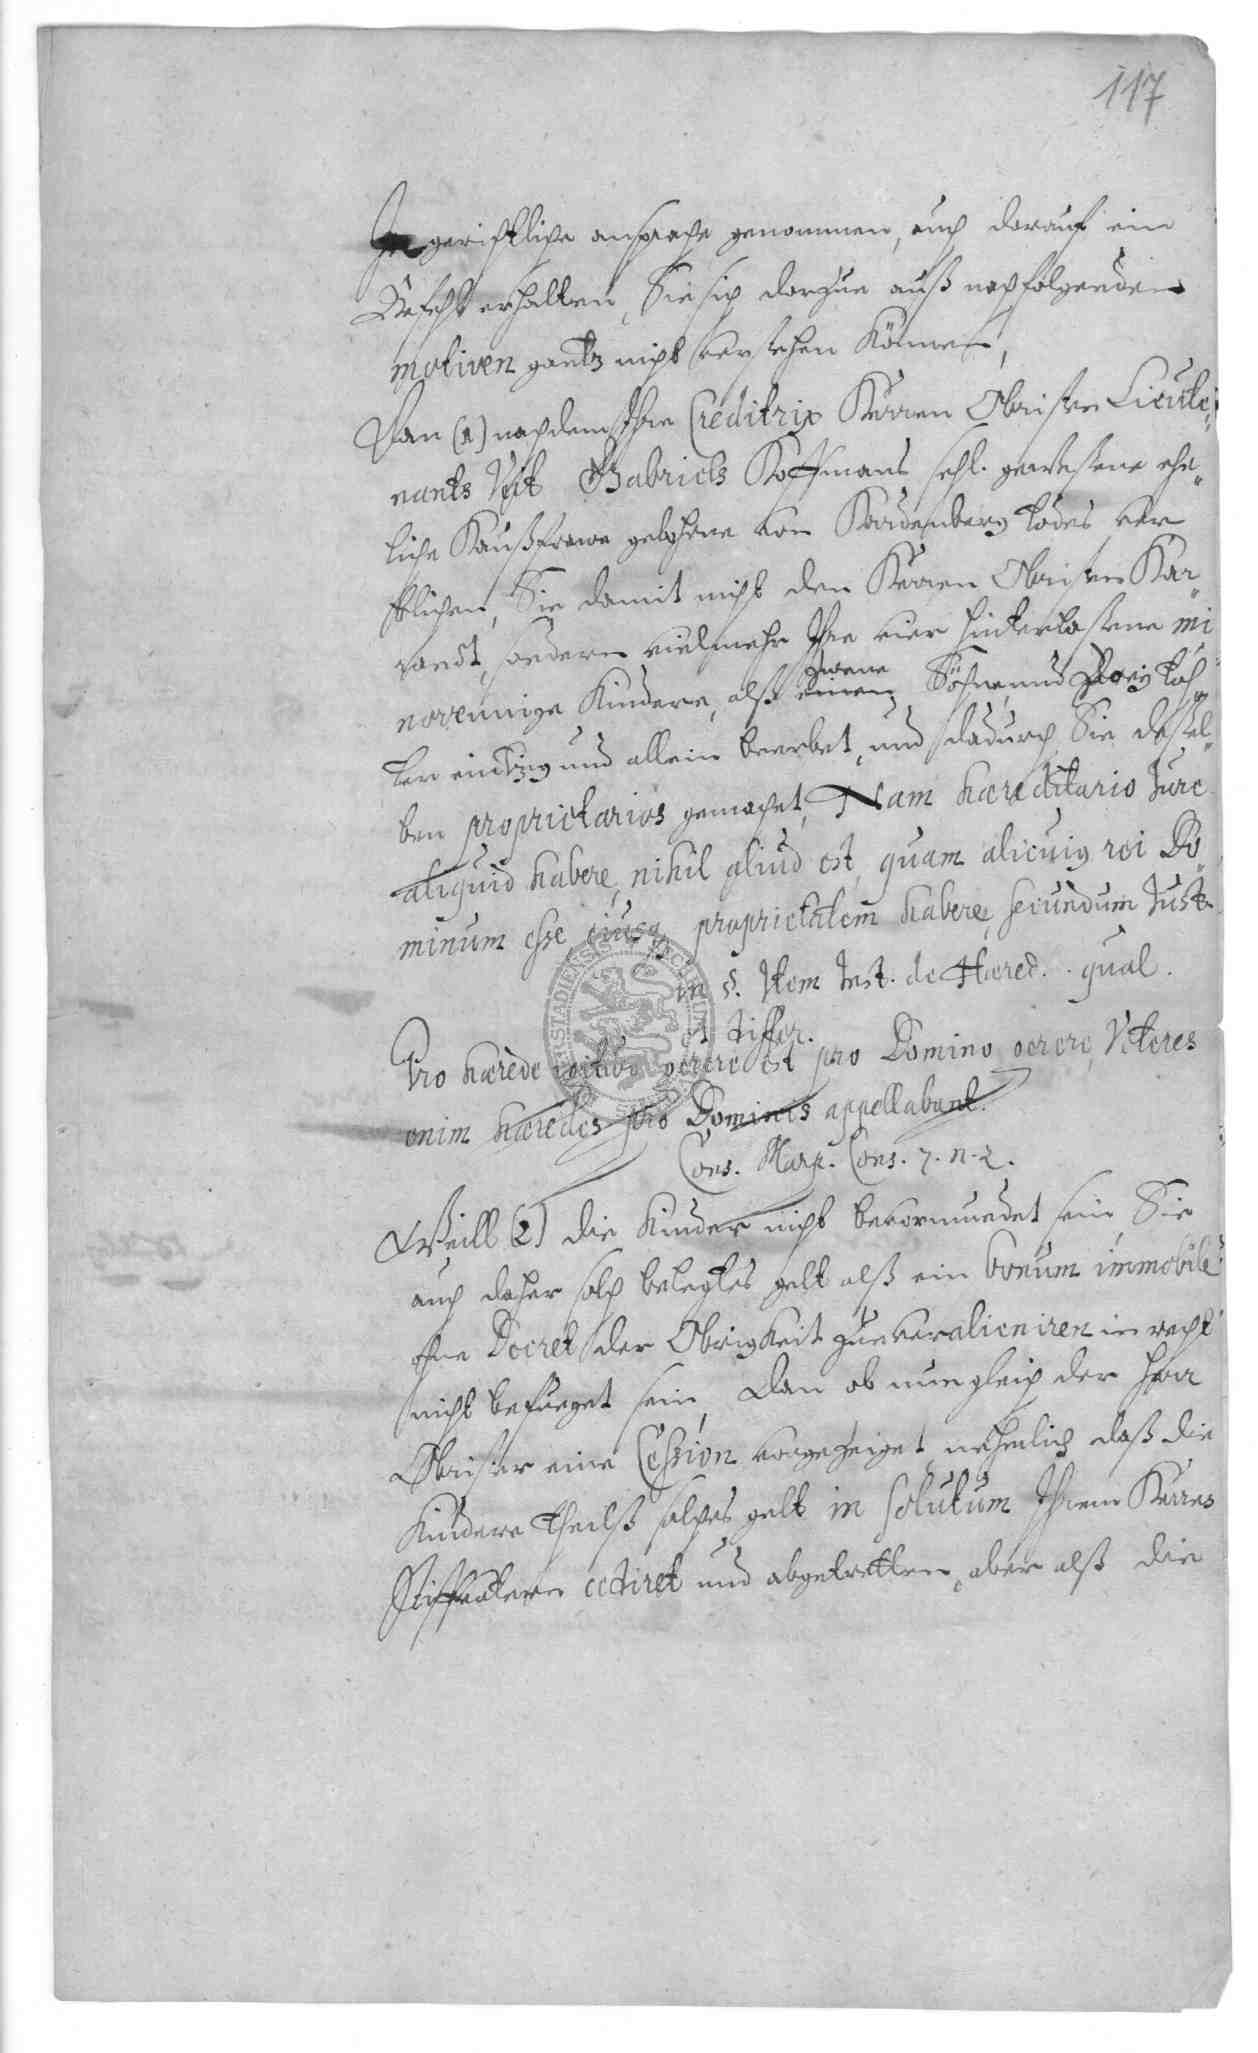 117
In gerichtliche ansprache genommen, auch darauf ein
Befehl erhalten, Sie sich darzue auß nachfolgenden
motiven gantz nicht verstehen können,
Dan (1) nachdem Ihre Creditrix Herren Obristen Lieute„
nants Veit Gabriels Hoffmans sehl. gewesene ehe„
liche Haußfrawe gebohrne von Hardenberg todes ver„
blichen, Sie damit nicht den Herren Obristen
sondern vielmehr Ihre vier hinterlaßene mi„
norennige Kindere, alß einen zwene Söhne, und zweÿ töch„
ter eintzig und allein beerbet, und dadurch Sie deßel„
ben proprietarios gemachet, Nam hæreditario Jure
aliquid habere, nihil aliud est, quam alicuiq rei Do„
minum esse, eiusq proprietatem habere, secundum Just.
in §. Item Inst. de Hæred. qual.
et differ.
Pro hærede gerere est pro Domino gerere, Veteres
enim hæredes pro Dominis appellabant.
Cons. Marp. Cons. 7. n. 2.
Weill (2) die Kinder nicht bevormundet sein Sie
auch daher solch belegtes gelt alß ein bonum immobile
ohne Decret der Obrigkeit zue veralieniren in recht
nicht befueget sein, Dan ob nun gleich der Herr
Obrister eine Cession vorgezeiget nehmlich daß die
Kindere theilß solches gelt in solutum Ihrem Herren
Stiffvatern cediret und abgetretten, aber alß die